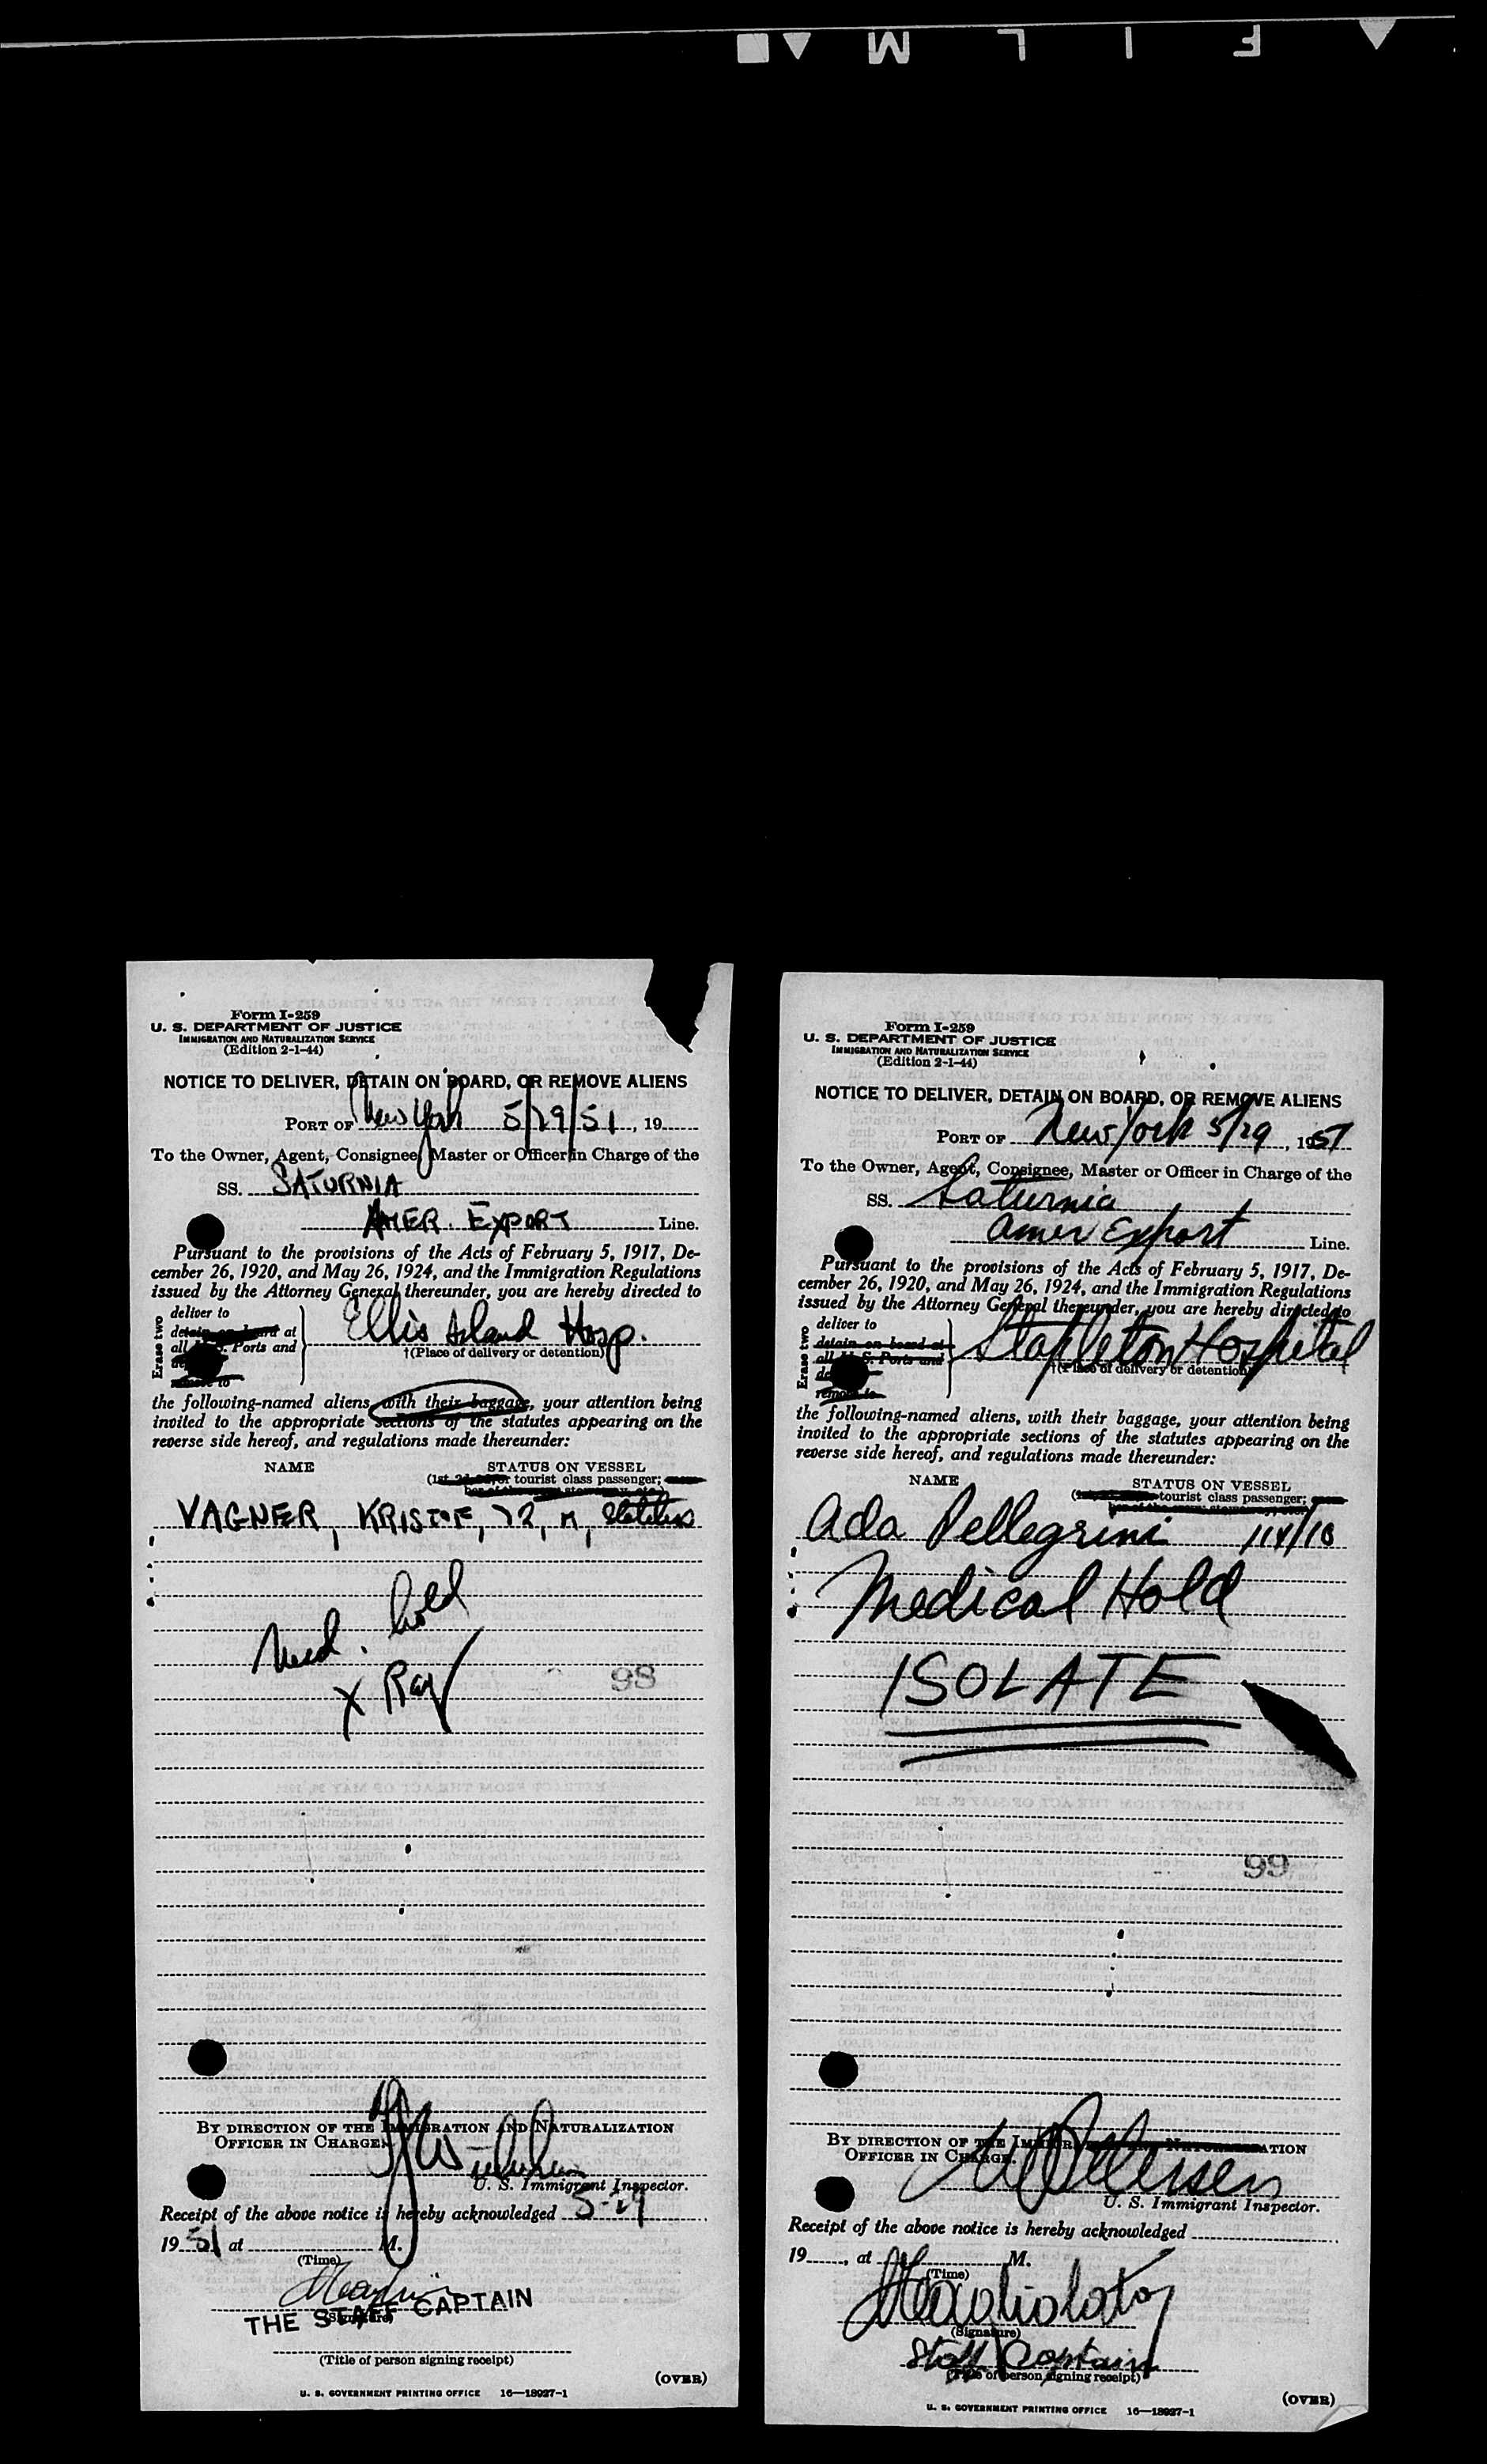 FILM
Form I-259
U. S. DEPARTMENT OF JUSTICE
IMMIGRATION AND NATURALIZATION SERVICE
(Edition 2-1-44)
NOTICE TO DELIVER, DETAIN ON BOARD, OR REMOVE ALIENS
PORT OF New York 5/29/51, 19
To the Owner, Agent, Consignee, Master or Officer in Charge of the
SS. SATURNIA
AMER. EXPORT Line.
Pursuant to the provisions of the Acts of February 5, 1917, De-
cember 26, 1920, and May 26, 1924, and the Immigration Regulations
issued by the Attorney General thereunder, you are hereby directed to
Erase two
deliver to
detain on board at
all U. S. Ports and
remove to
Ellis Island Hosp.
†(Place of delivery or detention)
the following-named aliens, with their baggage, your attention being
invited to the appropriate sections of the statutes appearing on the
reverse side hereof, and regulations made thereunder:
NAME STATUS ON VESSEL
(1st, 2d, or tourist class passenger;
VAGNER, KRISTOF, 72, M,
Med. hold
X Ray
98
BY DIRECTION OF THE IMMIGRATION AND NATURALIZATION
OFFICER IN CHARGE.
U. S. Immigrant Inspector.
Receipt of the above notice is hereby acknowledged 5-29
19 51 at M.
(Time)
THE STAFF CAPTAIN
(Signature)
(Title of person signing receipt)
(OVER)
U. S. GOVERNMENT PRINTING OFFICE 16—18927-1
Form I-259
U. S. DEPARTMENT OF JUSTICE
IMMIGRATION AND NATURALIZATION SERVICE
(Edition 2-1-44)
NOTICE TO DELIVER, DETAIN ON BOARD, OR REMOVE ALIENS
PORT OF New York 5/29, 1951
To the Owner, Agent, Consignee, Master or Officer in Charge of the
SS. Saturnia
Amer Export Line.
Pursuant to the provisions of the Acts of February 5, 1917, De-
cember 26, 1920, and May 26, 1924, and the Immigration Regulations
issued by the Attorney General thereunder, you are hereby directed to
Erase two
deliver to
detain on board at
all U. S. Ports and
remove to
Stapleton Hospital
†(Place of delivery or detention)
the following-named aliens, with their baggage, your attention being
invited to the appropriate sections of the statutes appearing on the
reverse side hereof, and regulations made thereunder:
NAME STATUS ON VESSEL
tourist class passenger;
Ada Pellegrini
Medical Hold
ISOLATE
99
BY DIRECTION OF THE IMMIGRATION AND NATURALIZATION
OFFICER IN CHARGE.
U. S. Immigrant Inspector.
Receipt of the above notice is hereby acknowledged
19 , at M.
(Time)
(Signature)
Staff Captain
(Title of person signing receipt)
(OVER)
U. S. GOVERNMENT PRINTING OFFICE 16—18927-1